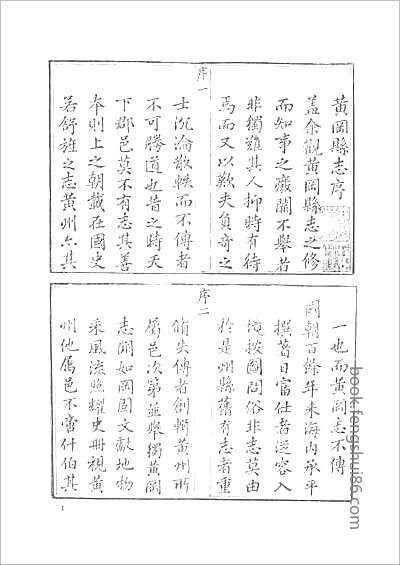 黃岡縣志序
蓋余觀黃岡縣志之修
而知事之廢闕不舉者
非獨難其人抑時有待
焉而又以歎夫負奇之
序一
士沉淪散軼而不傳者
不可勝道也昔之時天
下郡邑莫不有志其善
本則上之朝載在國史
若舒旌之志黃州亦其
一也而黃岡志不傳
國朝百餘年來海內承平
撰著日富仕者泛容入
境按圖問俗非志莫由
於是州縣舊有志者重
序二
脩失傳者創輯黃州所
屬邑次第並舉獨黃岡
志闕如岡固文獻地物
采風流照耀史冊視黃
州他屬邑不啻什伯其
1
book.fengshui86.com